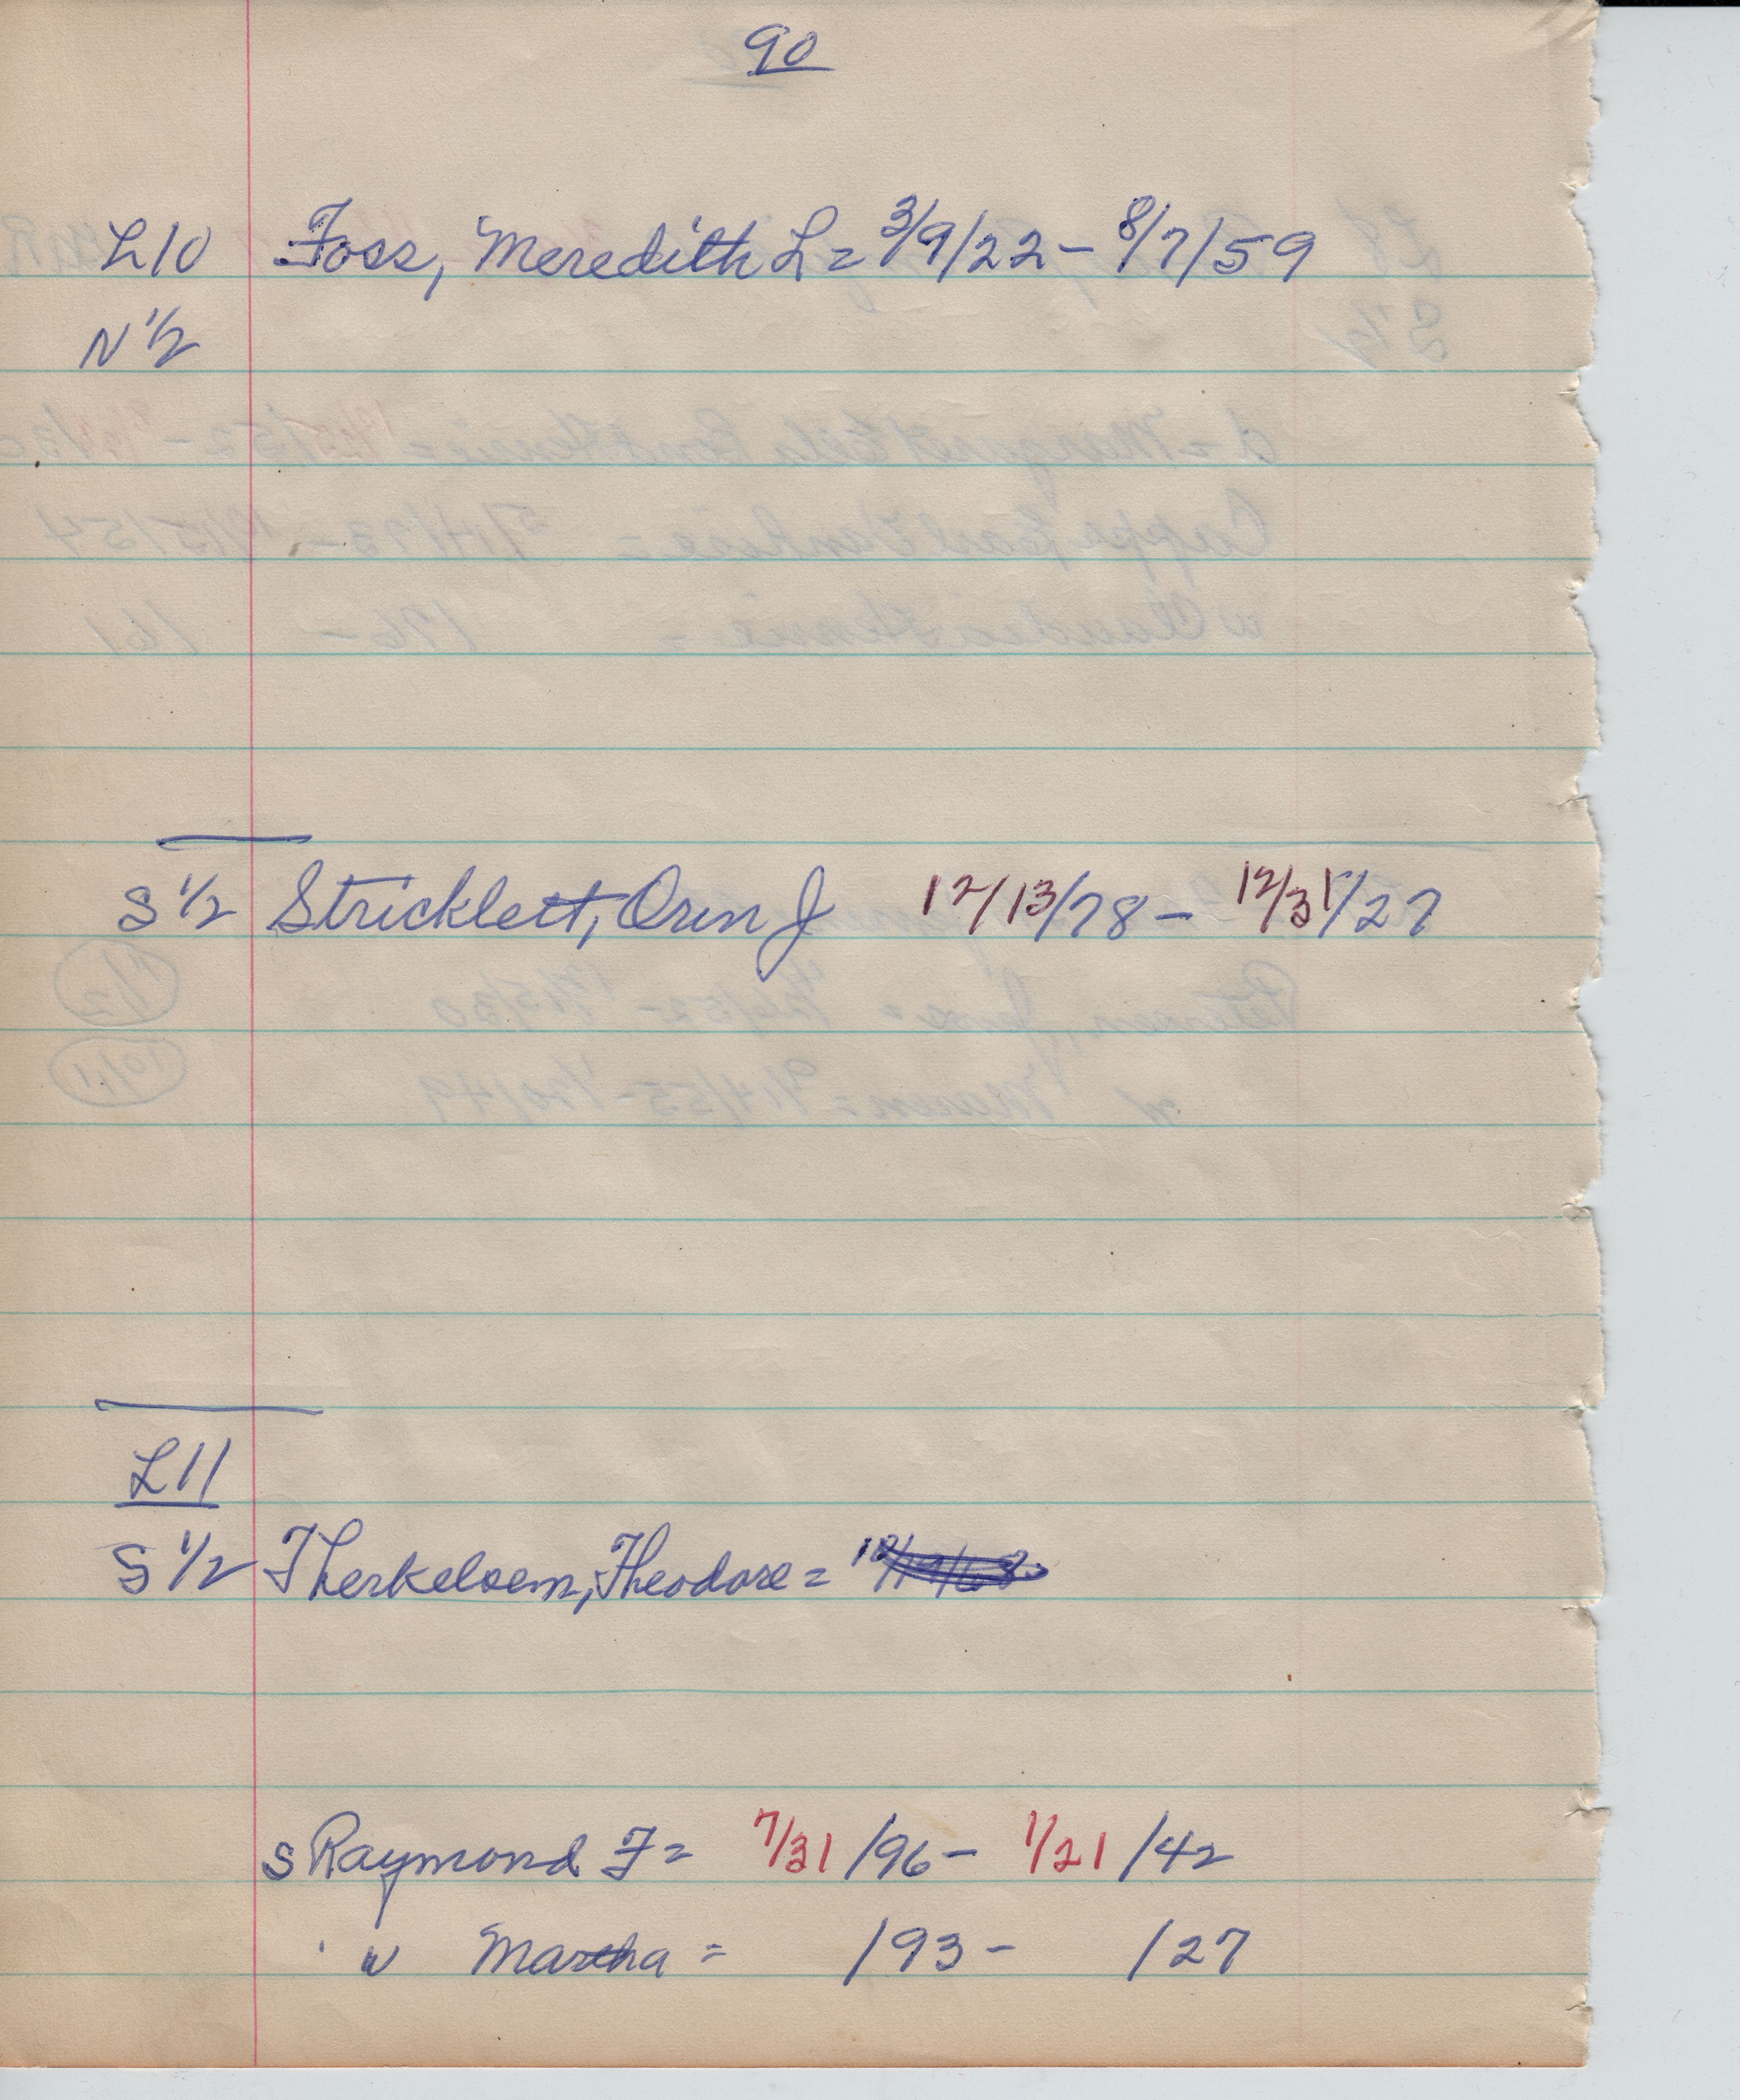 90
L10 Foss, Meredith L = 3/9/22 - 8/7/59
N 1/2
S 1/2 Stricklett, Oren J 12/13/78 - 12/31/27
L11
S 1/2 Therkelsem, Theodore =
s Raymond F = 7/31/96 - 1/21/42
w Martha = /93 - /27